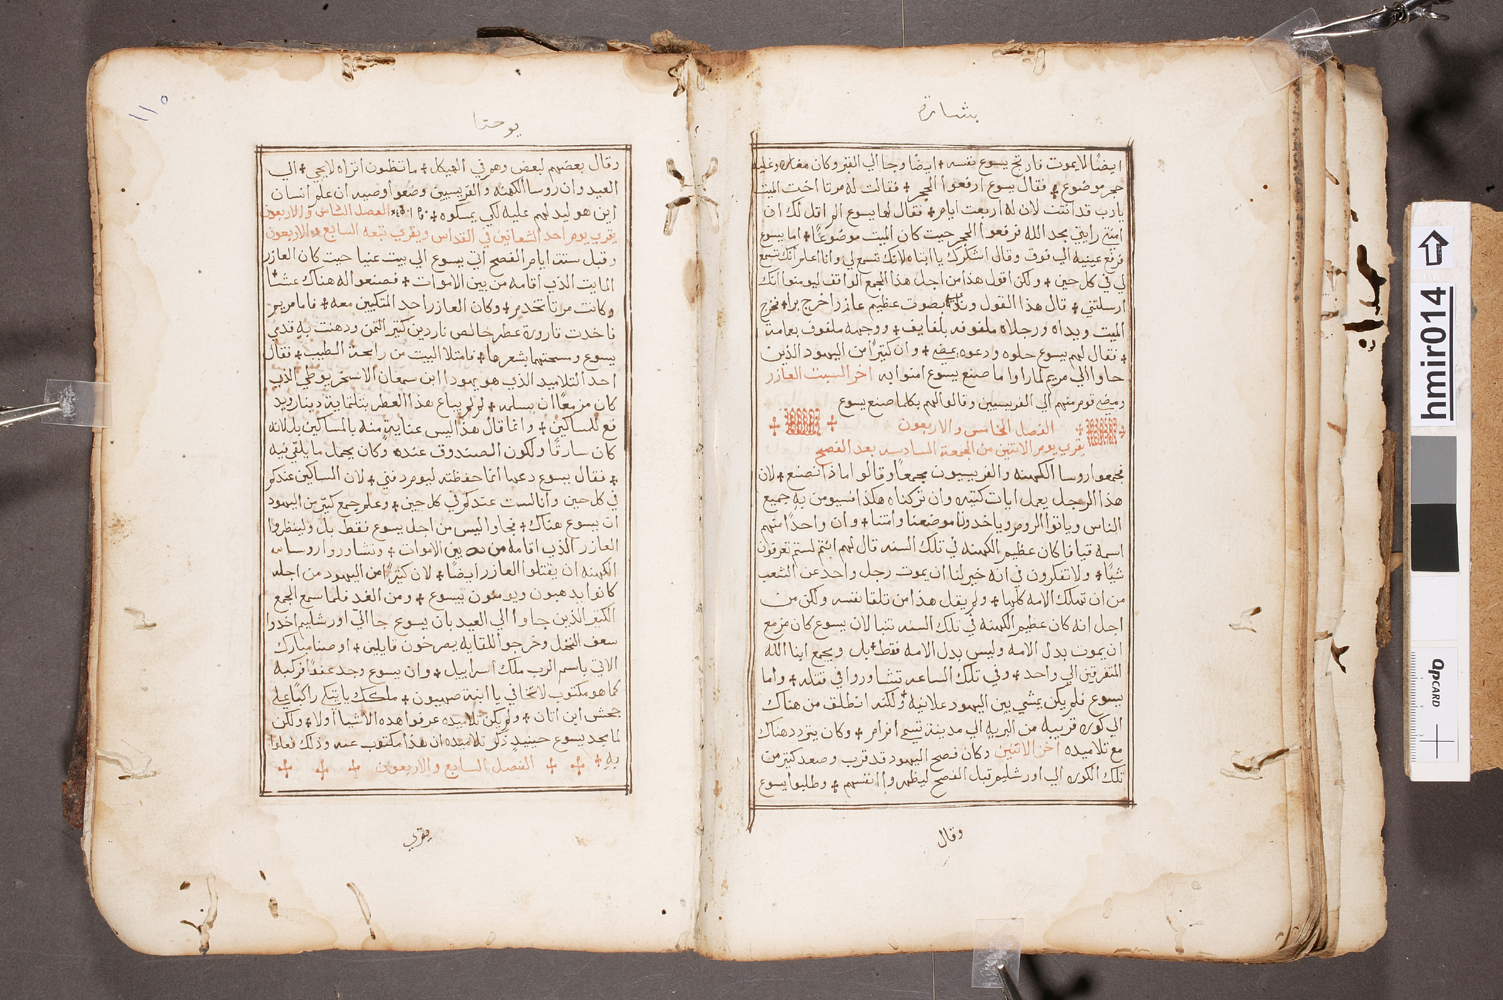 بشارة
ايضًا لا يموت فارتج يسوع بنفسه ايضًا وجا الي القبر وكان مغاره وعليه
حجر موضوع فقال يسوع ارفعوا الحجر فقالت له مرتا اخت الميت
يارب قد انتن لان له اربعت ايام فقال لها يسوع الم اقل لك ان
امنتي رايتي مجد الله فرفعوا الحجر حيت كان الميت موضوعًا اما يسوع
فرفع عينيه الي فوق وقال اشكرك يا ابتاه لانك تسمع لي وانا اعلم انك تسمع
لي في كل حين ولكن اقول هذا من اجل هذا الجمع الواقف ليومنوا انك
ارسلتني قال هذا القول بصوت عظيم عازر اخرج برا فخرج
الميت ويداه ورجلاه ملفوفه بلفايف ووجهه ملفوف بعمامة
فقال لهم يسوع حلوه وادعوه يمضي وان كتيرًا من اليهود الذين
جاوا الي مريم لما راوا ما صنع يسوع امنوا به اخر السبت العازر
ومضي قوم منهم الي الفريسيين وقالوا لهم بكلما صنع يسوع
الفصل الخامس والاربعون
يقري يوم الاتنين من الجمعة السادسه بعد الفصح
فجمعوا روسا الكهنه والفريسيون مجمعًا وقالوا ماذا نصنع لان
هذا الرجل يعمل ايات كتيره وان تركناه هكذا فسيومن به جميع
الناس وياتوا الروم وياخدوا موضعنا وامتنا وان واحدًا منهم
اسمه قيافا كان عظيم الكهنه في تلك السنه قال لهم انتم لستم تعرفون
شيًا ولا تفكرون في انه خير لنا ان يموت رجل واحد عن الشعب
من ان تهلك الامه كلها ولم يقل هذا من تلقا نفسه ولكن من
اجل انه كان عظيم الكهنه في تلك السنه تنبا لان يسوع كان مزمع
ان يموت بدل الامه وليس بدل الامه فقط بل ويجمع ابنا الله
المتفرقين الي واحد وفي تلك الساعه تشاوروا في قتله واما
يسوع فلم يكن يمشي بين اليهود علانيه ولكنه انطلق من هناك
الي كوره قريبه من البريه الي مدينة تسمي افرام وكان يتردد هناك
مع تلاميده اخر الاتنين وكان فصح اليهود قد قرب وصعد كتير من
تلك الكوره الي اورشليم قبل الفصح ليطهروا انفسهم وطلبوا يسوع
وقال
يوحنا
١١٥
وقال بعضهم لبعض وهم في الهيكل ما تظنون اتراه لا يجي الي
العيد وان روسا الكهنه والفريسيين وضعوا وصيه ان علم انسان
اين هو ليدلهم عليه لكي يمسكوه الفصل السادس والاربعون
يقري يوم احد الشعانين في القداس ويقري تبعه السابع والاربعون
وقبل ستت ايام الفصح اتي يسوع الي بيت عنيا حيت كان العازر
المايت الذي اقامه من بين الاموات فصنعوا له هناك عشًا
وكانت مرتا تخدم وكان العازر احد المتكيين معه فاما مريم
فاخدت قارورة عطر خالص ناردين كتير التمن ودهنت به قدمي
يسوع ومسحتهما بشعرها فامتلا البيت من رايحة الطيب فقال
احد التلاميد الذي هو يهودا ابن سمعان الاسخريوطي الذي
كان مزمعًا ان يسلمه لم لم يباع هذا العطر بتلتماية دينار ويد
فع للمساكين وانما قال هذا ليس عناية منه بالمساكين بل لانه
كان سارقًا ولكون الصندوق عنده وكان يحمل ما يلقي فيه
فقال يسوع دعها انما حفظته ليوم دفني لان المساكين عندكم
في كل حين وانا لست عندكم في كل حين وعلم جمع كتير من اليهود
ان يسوع هناك فجاوا ليس من اجل يسوع فقط بل ولينظروا
العازر الذي اقامه من بين الاموات وتشاوروا روسا
الكهنه ان يقتلوا العازر ايضًا لان كتيرًا من اليهود من اجله
كانوا يدهبون ويومنون بيسوع ومن الغد فلما سمع الجمع
الكتير الذين جاوا الي العيد بان يسوع جا الي اورشليم اخدوا
سعف النخل وخرجوا للقايه يصرخون قايلين اوصنا مبارك
الاتي باسم الرب ملك اسراييل وان يسوع وجد عفوًا فركبه
كما هو مكتوب لا تخافي يا ابنة صهيون ملكك ياتيك راكبًا علي
جحش ابن اتان ولم يكن تلاميده عرفوا هده الاشيا اولا ولكن
لما مجد يسوع حينيد ذكر تلاميده ان هذا مكتوب عنه وذلك فعلوا
به الفصل السابع والاربعون
يقري
hmir014
QPCARD